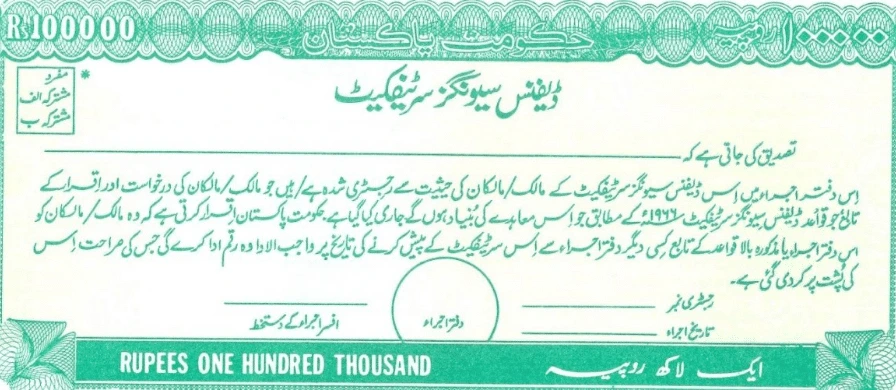 Rs100000 حکومت پاکستان ۱۰۰۰۰۰ روپیہ
ڈیفنس سیونگز سرٹیفکیٹ
* مفرد
مشترکہ الف
مشترکہ ب
تصدیق کی جاتی ہے کہ
اس دفتر اجراء میں اِس ڈیفنس سیونگز سرٹیفکیٹ کے مالک/مالکان کی حیثیت سے رجسٹری شدہ ہے/ہیں جو مالک/مالکان کی درخواست اور اقرار کے
تابع جو قواعد ڈیفنس سیونگز سرٹیفکیٹ ۱۹۶۶ء کے مطابق جو اس معاہدے کی بُنیاد ہوں گے جاری کیا گیا ہے۔ حکومت پاکستان اقرار کرتی ہے کہ وہ مالک/مالکان کو
اس دفتر اجراء یا مذکورہ بالا قواعد کے تابع کسی دیگر دفتر اجراء سے اِس سرٹیفکیٹ کے پیش کرنے کی تاریخ پر واجب الادا وہ رقم ادا کرے گی جس کی صراحت اِس
کی پُشت پر کردی گئی ہے۔
رجسٹری نمبر
تاریخ اجراء
دفتر اجراء
افسر اجراء کے دستخط
RUPEES ONE HUNDRED THOUSAND ایک لاکھ روپیہ